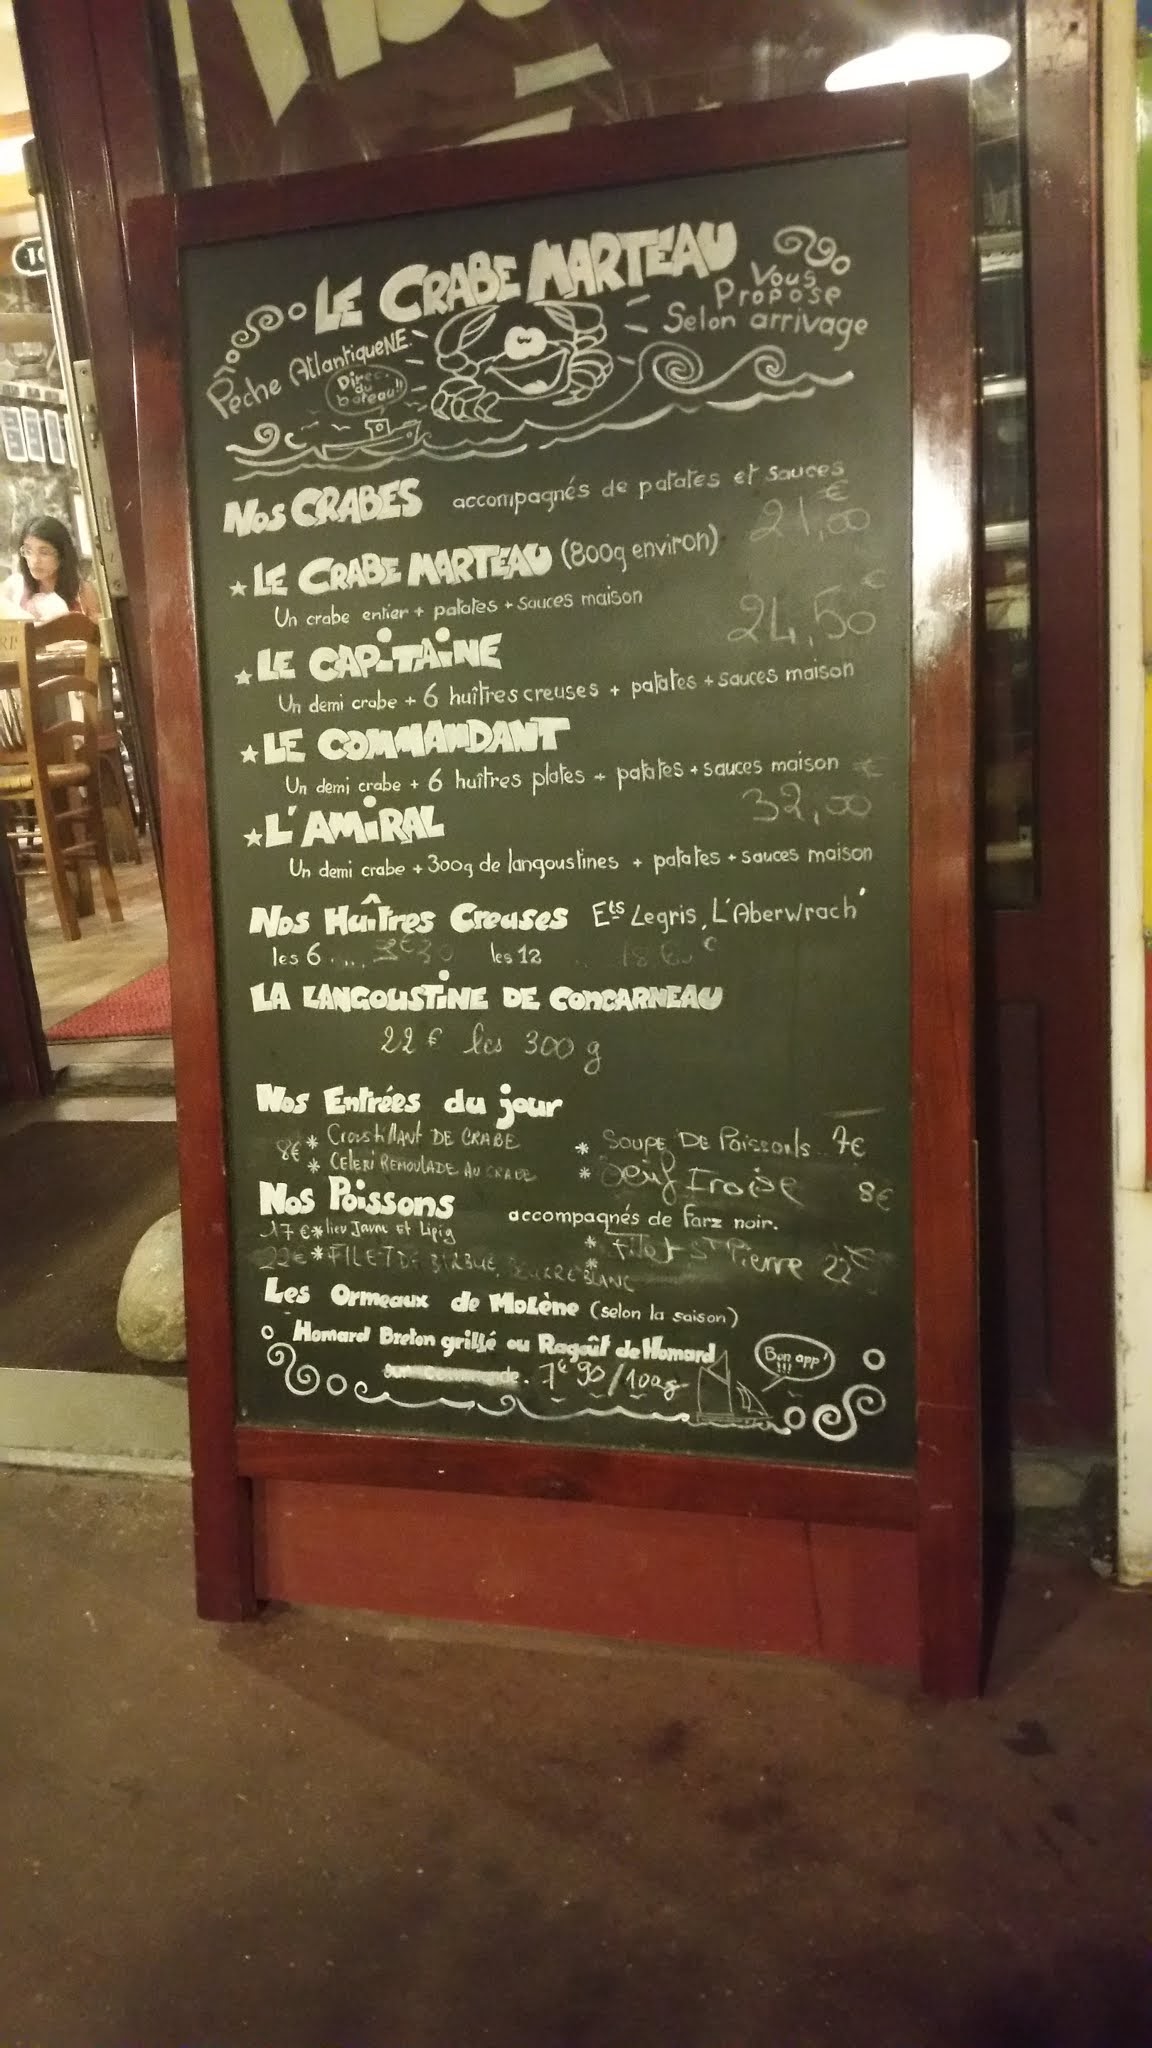 LE CRABE MARTEAU
Vous
Propose
Selon arrivage
Pêche AtlantiqueNE
Direct
du
bateau!!
Nos CRABES accompagnés de patates et sauces
21,00 €
★ LE CRABE MARTEAU (800g environ)
Un crabe entier + patates + sauces maison
24,50 €
★ LE CAPITAINE
Un demi crabe + 6 huîtres creuses + patates + sauces maison
★ LE COMMANDANT
Un demi crabe + 6 huîtres plates + patates + sauces maison
32,00 €
★ L'AMiRAL
Un demi crabe + 300g de langoustines + patates + sauces maison
Nos Huîtres Creuses Ets Legris, L'Aberwrach'
les 6 .... les 12
LA LANGOUSTiNE DE CONCARNEAU
22 € les 300 g
Nos Entrées du jour
8€ * CroustillANT DE CRABE
* SOUPE DE Poissons .. 7€
* CELERI REMOULADE AU CRABE
* Oeuf Iroise 8€
Nos Poissons accompagnés de farz noir.
17 € * lieu Jaune et Lipig
* Filet St Pierre 22€
22€ * FILET DE BARBUE, BEURRE BLANC
Les Ormeaux de Molène (selon la saison)
Homard Breton grillé ou Ragoût de Homard
sur commande. 7€90/100g
Bon app'
!!!